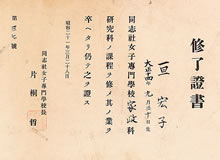 修了證書
亘 宏子
大正十四年九月三十日生
同志社女子專門學校家政科
研究科ノ課程ヲ修メ其ノ業ヲ
卒ヘタリ仍テ之ヲ證ス
昭和二十一年三月二十八日
同志社女子專門學校長
片桐 哲